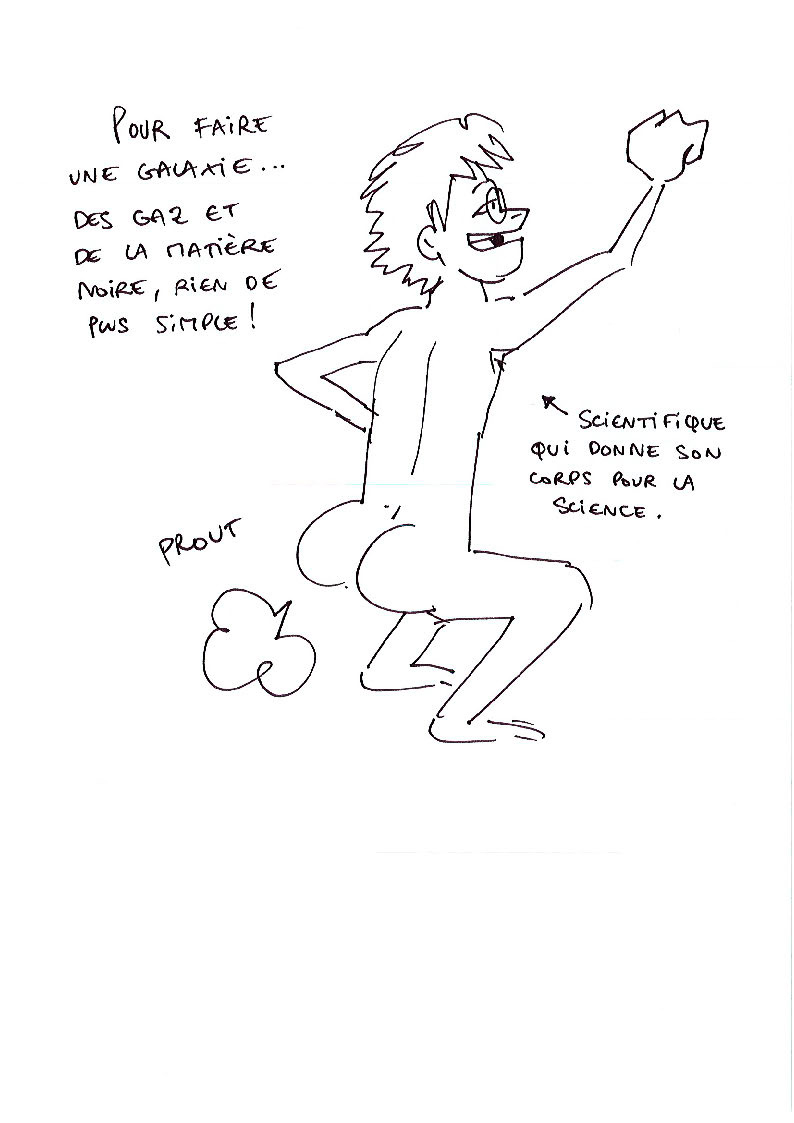 POUR FAIRE
UNE GALAXIE...
DES GAZ ET
DE LA MATIÈRE
NOIRE, RIEN DE
PLUS SIMPLE !
SCIENTIFIQUE
QUI DONNE SON
CORPS POUR LA
SCIENCE.
PROUT